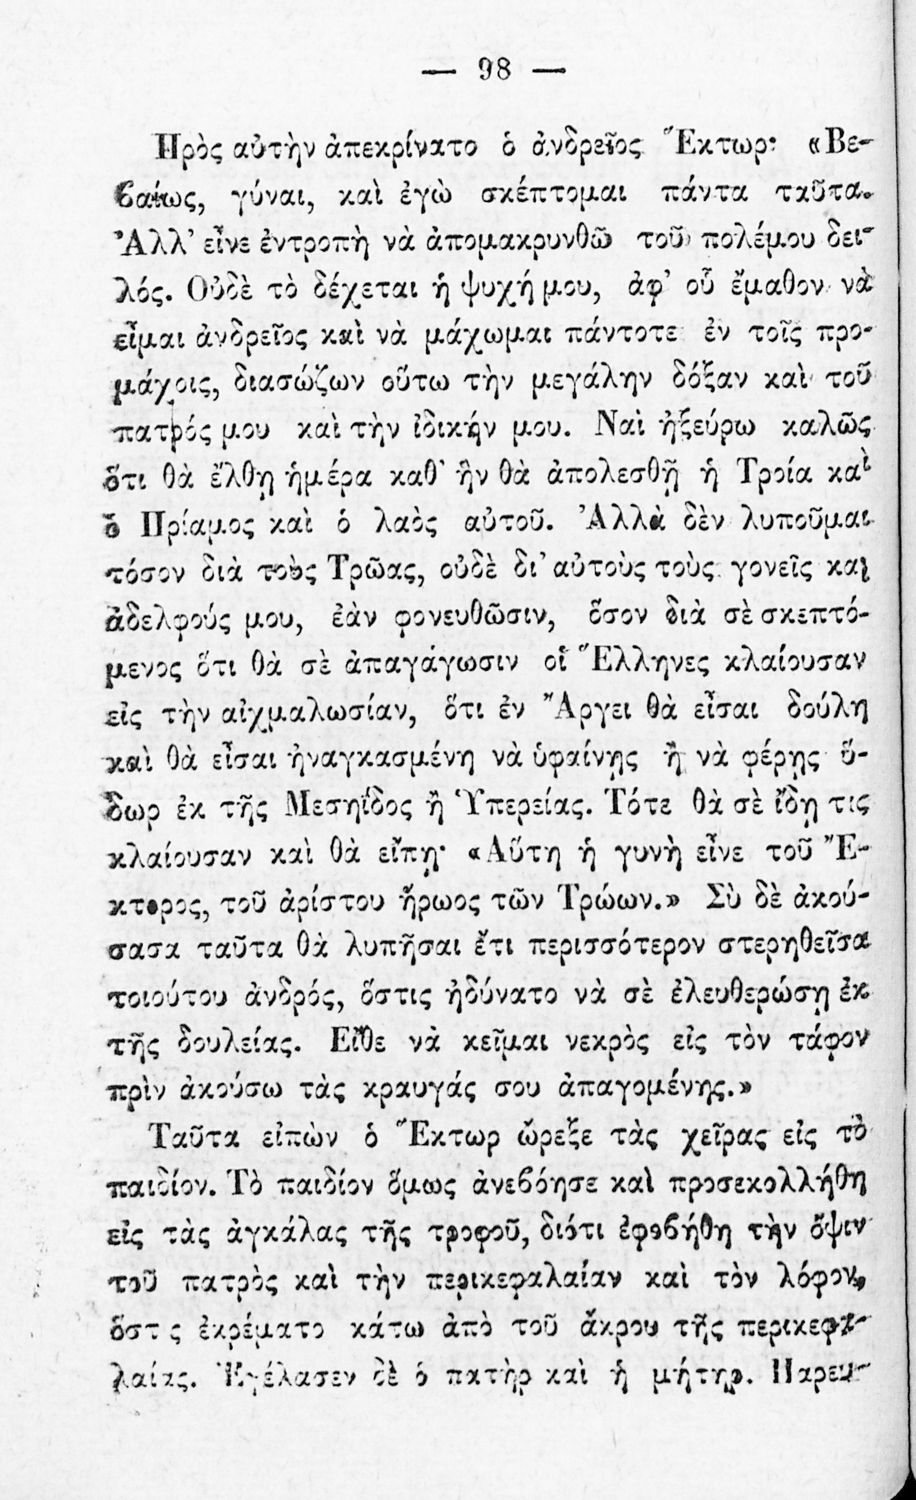 — 98 —
Πρὸς αὐτὴν ἀπεκρίνατο ὁ ἀνδρεῖος Ἕκτωρ· «Βε-
ϐαίως, γύναι, καὶ ἐγὼ σκέπτομαι πάντα ταῦτα.
Ἀλλ’ εἶνε ἐντροπὴ νὰ ἀπομακρυνθῶ τοῦ πολέμου δει-
λός. Οὐδὲ τὸ δέχεται ἡ ψυχή μου, ἀφ’ οὗ ἔμαθον νὰ
εἶμαι ἀνδρεῖος καὶ νὰ μάχωμαι πάντοτε ἐν τοῖς προ-
μάχοις, διασώζων οὕτω τὴν μεγάλην δόξαν καὶ τοῦ
πατρός μου καὶ τὴν ἰδικήν μου. Ναὶ ἠξεύρω καλῶς
ὅτι θὰ ἔλθῃ ἡμέρα καθ’ ἣν θὰ ἀπολεσθῇ ἡ Τροία καὶ
ὁ Πρίαμος καὶ ὁ λαὸς αὐτοῦ. Ἀλλὰ δὲν λυποῦμαι
τόσον διὰ τοὺς Τρῶας, οὐδὲ δι’ αὐτοὺς τοὺς γονεῖς καὶ
ἀδελφούς μου, ἐὰν φονευθῶσιν, ὅσον διὰ σὲ σκεπτό-
μενος ὅτι θὰ σὲ ἀπαγάγωσιν οἱ Ἕλληνες κλαίουσαν
εἰς τὴν αἰχμαλωσίαν, ὅτι ἐν Ἄργει θὰ εἶσαι δούλη
καὶ θὰ εἶσαι ἠναγκασμένη νὰ ὑφαίνῃς ἢ νὰ φέρῃς ὕ-
δωρ ἐκ τῆς Μεσηΐδος ἢ Ὑπερείας. Τότε θὰ σὲ ἴδῃ τις
κλαίουσαν καὶ θὰ εἴπῃ· «Αὕτη ἡ γυνὴ εἶνε τοῦ Ἕ-
κτορος, τοῦ ἀρίστου ἥρωος τῶν Τρώων.» Σὺ δὲ ἀκού-
σασα ταῦτα θὰ λυπῆσαι ἔτι περισσότερον στερηθεῖσα
τοιούτου ἀνδρός, ὅστις ἠδύνατο νὰ σὲ ἐλευθερώσῃ ἐκ
τῆς δουλείας. Εἴθε νὰ κεῖμαι νεκρὸς εἰς τὸν τάφον
πρὶν ἀκούσω τὰς κραυγάς σου ἀπαγομένης.»
Ταῦτα εἰπὼν ὁ Ἕκτωρ ὤρεξε τὰς χεῖρας εἰς τὸ
παιδίον. Τὸ παιδίον ὅμως ἀνεϐόησε καὶ προσεκολλήθη
εἰς τὰς ἀγκάλας τῆς τροφοῦ, διότι ἐφοϐήθη τὴν ὄψιν
τοῦ πατρὸς καὶ τὴν περικεφαλαίαν καὶ τὸν λόφον,
ὅστις ἐκρέματο κάτω ἀπὸ τοῦ ἄκρου τῆς περικεφα-
λαίας. Ἐγέλασεν δὲ ὁ πατὴρ καὶ ἡ μήτηρ. Παρευ-